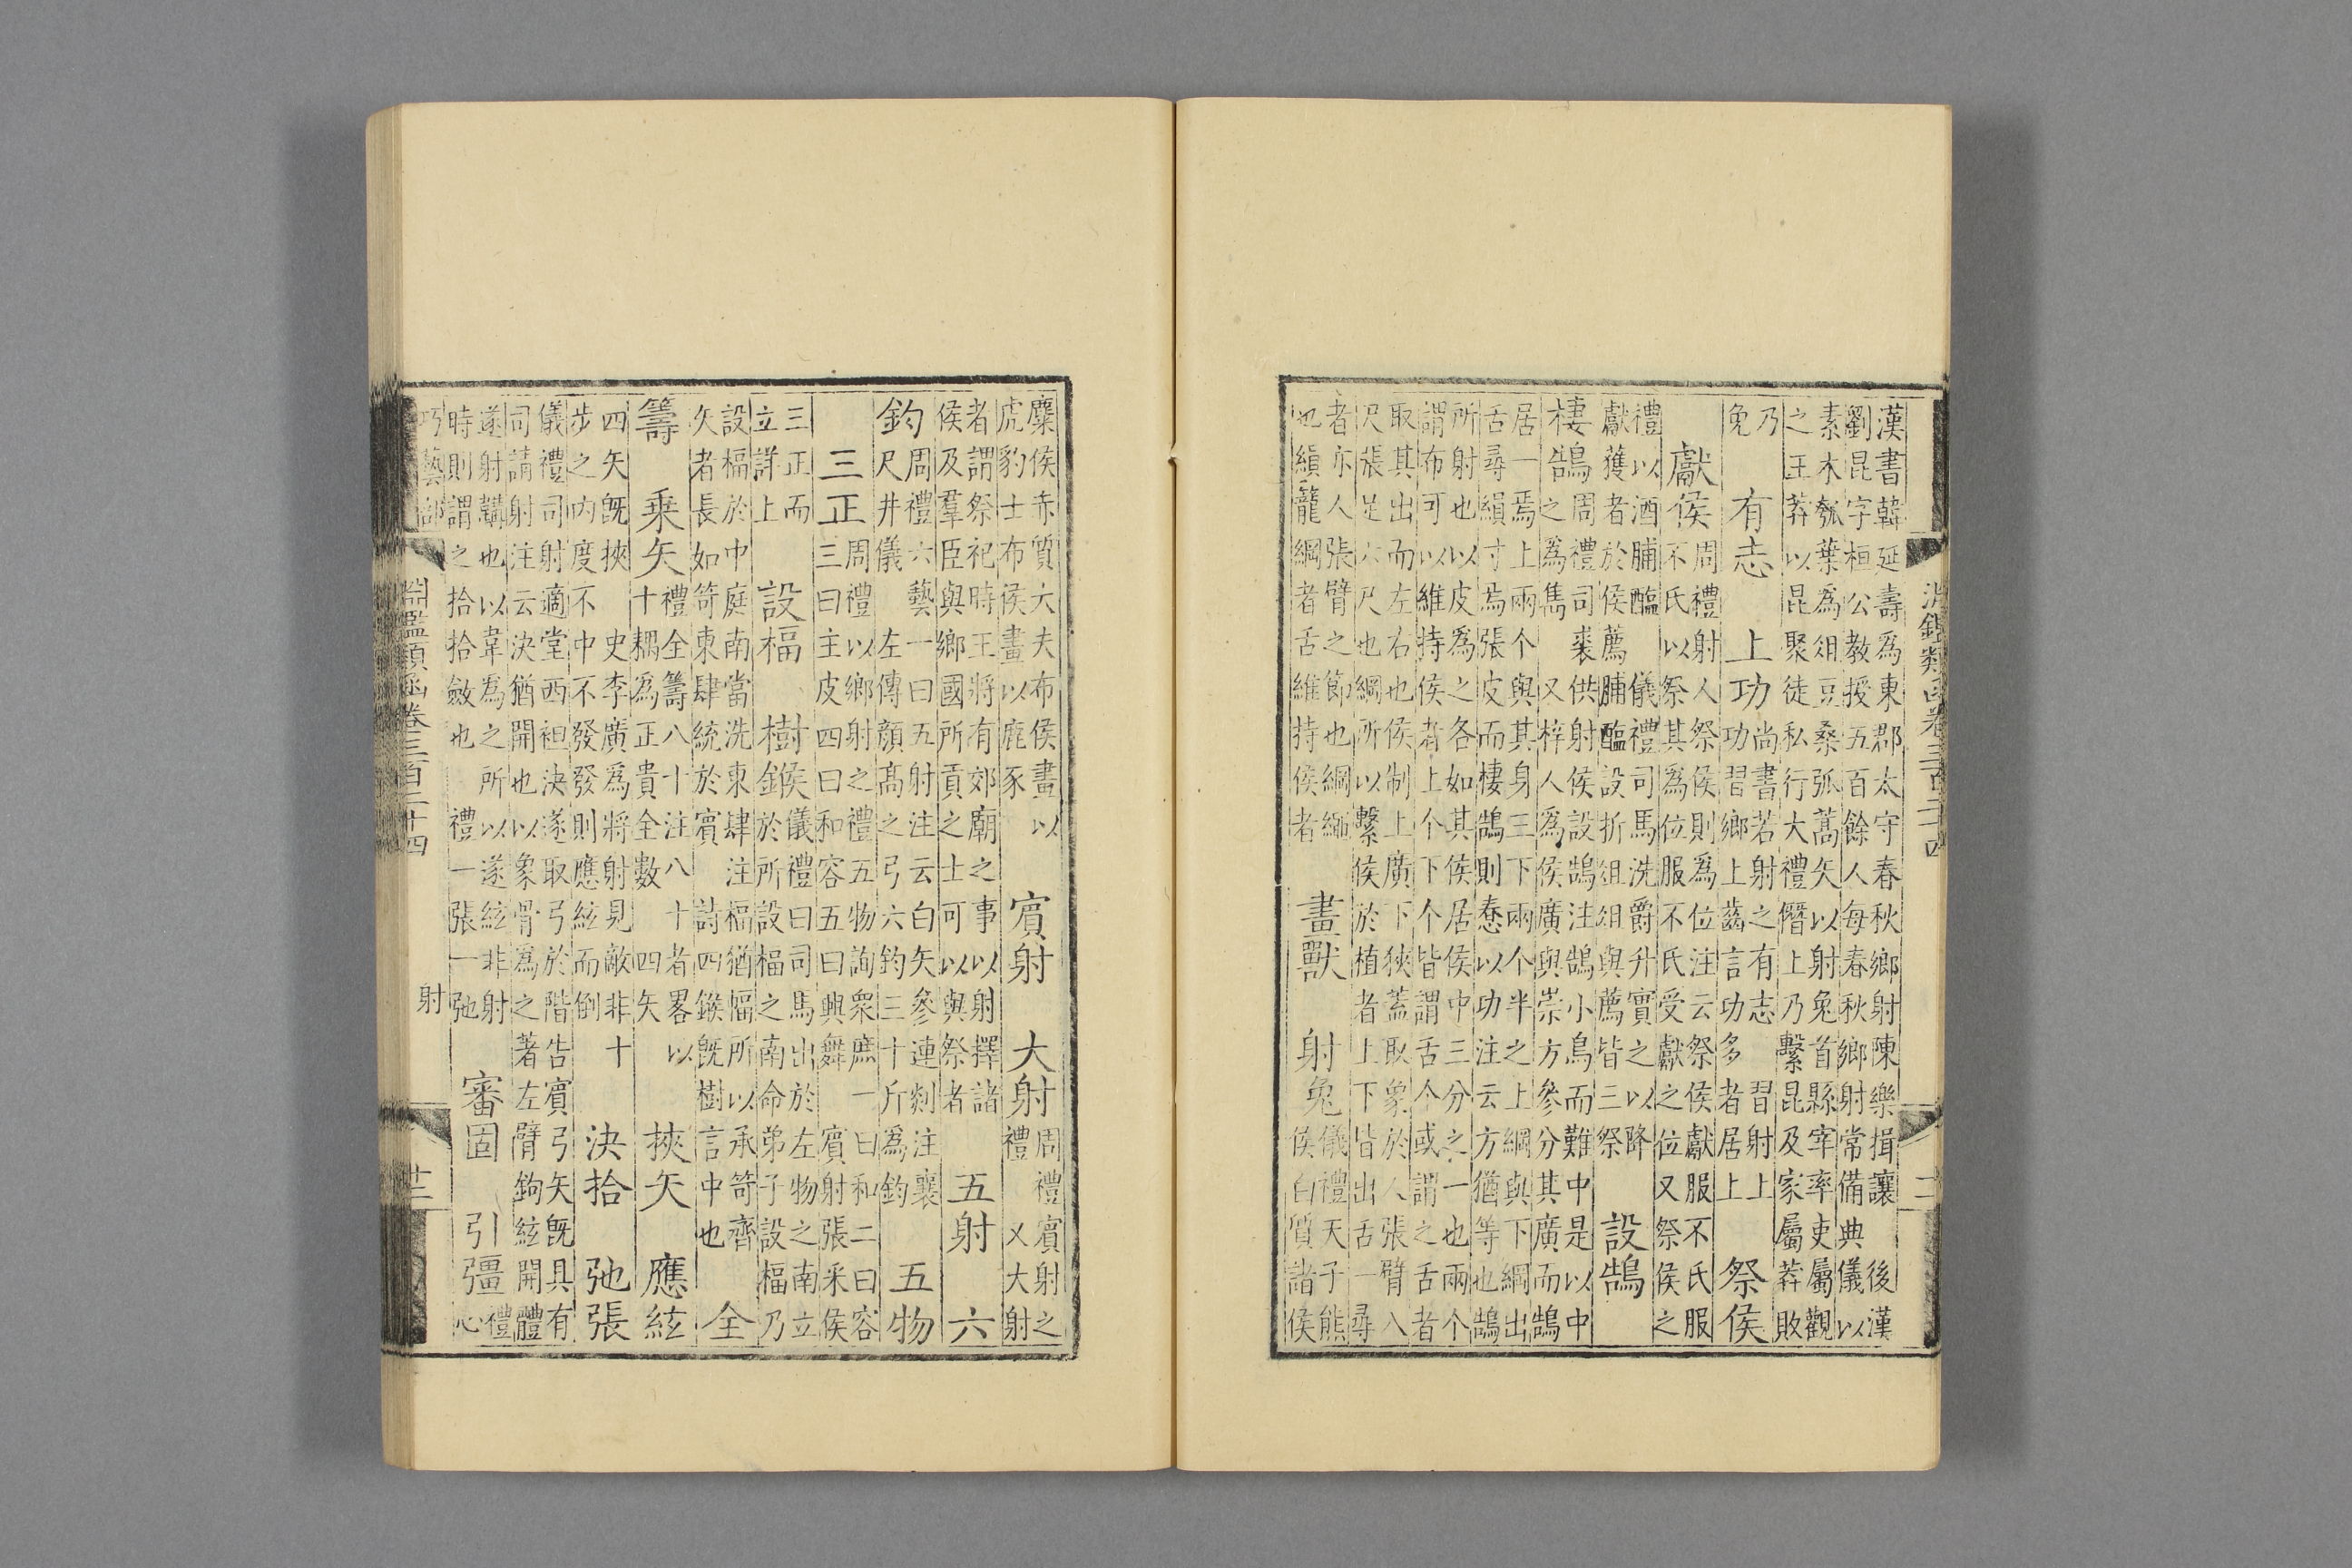 淵鑑類函卷三百二十四
漢書韓延壽為東郡太守春秋鄉射陳樂揖讓 後漢
劉昆字桓公教授五百餘人每春秋鄉射常備典儀以
素木瓠葉為俎豆桑弧蒿矢以射兔首縣宰率吏屬觀
之王莽以昆聚徒私行大禮僭上乃繫昆及家屬莽敗
乃
免
有志 上功
尚書若射之有志 習射上
功習鄉上齒言功多者居上
祭侯
獻侯
周禮射人祭侯則為位注云祭侯獻服不氏服
不氏以祭其為位服不氏受獻之位又祭侯之
禮以酒脯醢 儀禮司馬洗爵升實之以降
獻獲者於侯薦脯醢設折俎俎與薦皆三祭
設鵠
棲鵠
周禮司裘供射侯設鵠注鵠小鳥而難中是以中
之為雋 又梓人為侯廣與崇方參分其廣而鵠
居一焉上兩个與其身三下兩个半之上綱與下綱出
舌尋縜寸焉張皮而棲鵠則惷以功注云方猶等也鵠
所射也以皮為之各如其侯居侯中三分之一也兩个
謂布可以維持侯者上个下个皆謂舌个或謂之舌者
取其出而左右也侯制上廣下狹蓋取象於人張臂八
尺張足六尺也綱所以繫侯於植者上下皆出舌一尋
者亦人張臂之節也綱緪
也縜籠綱者舌維持侯者
畫獸 射兔
儀禮天子熊
侯白質諸侯
麋侯赤質大夫布侯畫以
虎豹士布侯畫以鹿豕
賓射 大射
周禮賓射之
禮 又大射
者謂祭祀時王將有郊廟之事以射擇諸
侯及羣臣與鄉國所貢之士可以與祭者
五射 六
鈞
周禮六藝一曰五射注云白矢參連剡注襄
尺井儀 左傳顏高之弓六鈞三十斤為鈞
五物
三正
周禮以鄉射之禮五物詢衆庶一曰和二曰容
三曰主皮四曰和容五曰興舞 賓射張釆侯
三正而
立詳上
設楅 樹鍭
儀禮曰司馬出於左物之南立
於所設楅之南命弟子設楅乃
設楅於中庭南當洗東肆 注楅猶幅所以承笴齊
矢者長如笴東肆統於賓 詩四鍭既樹言中也
全
籌 乗矢
禮全籌八十注八十者畧以
十耦為正貴全數 四矢
挾矢 應絃
四矢既挾 史李廣為將射見敵非十
步之內度不中不發發則應絃而倒
決拾 弛張
儀禮司射適堂西袒決遂取弓於階告賓弓矢既具有
司請射注云決猶開也以象骨為之著左臂鉤絃開體
遂射韝也以韋為之所以遂絃非射
時則謂之拾拾斂也 禮一張一弛
審固 引彊
禮
心
巧藝部 淵鑑類函卷三百二十四 射